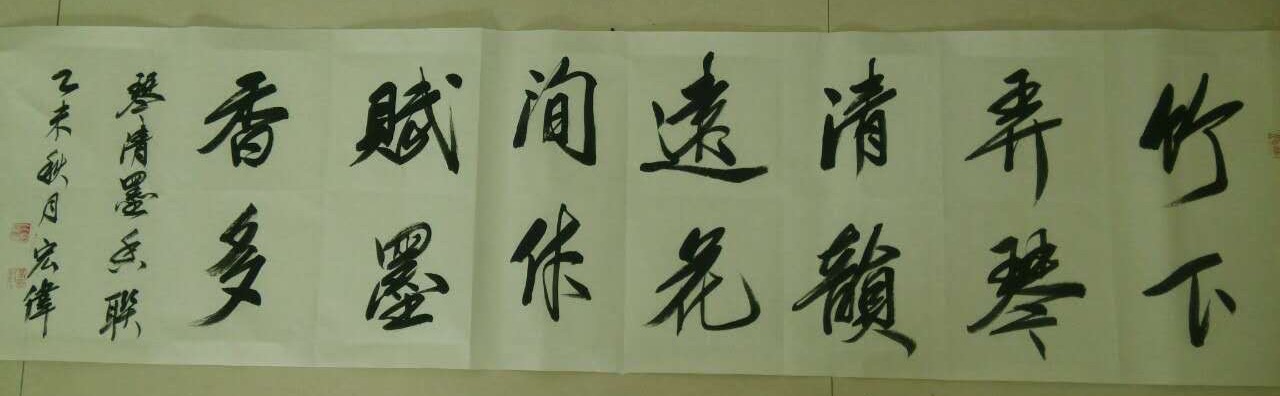 竹下
弄琴
清韻
遠花
間作
賦墨
香多
琴清墨香聯
乙未秋月宏偉